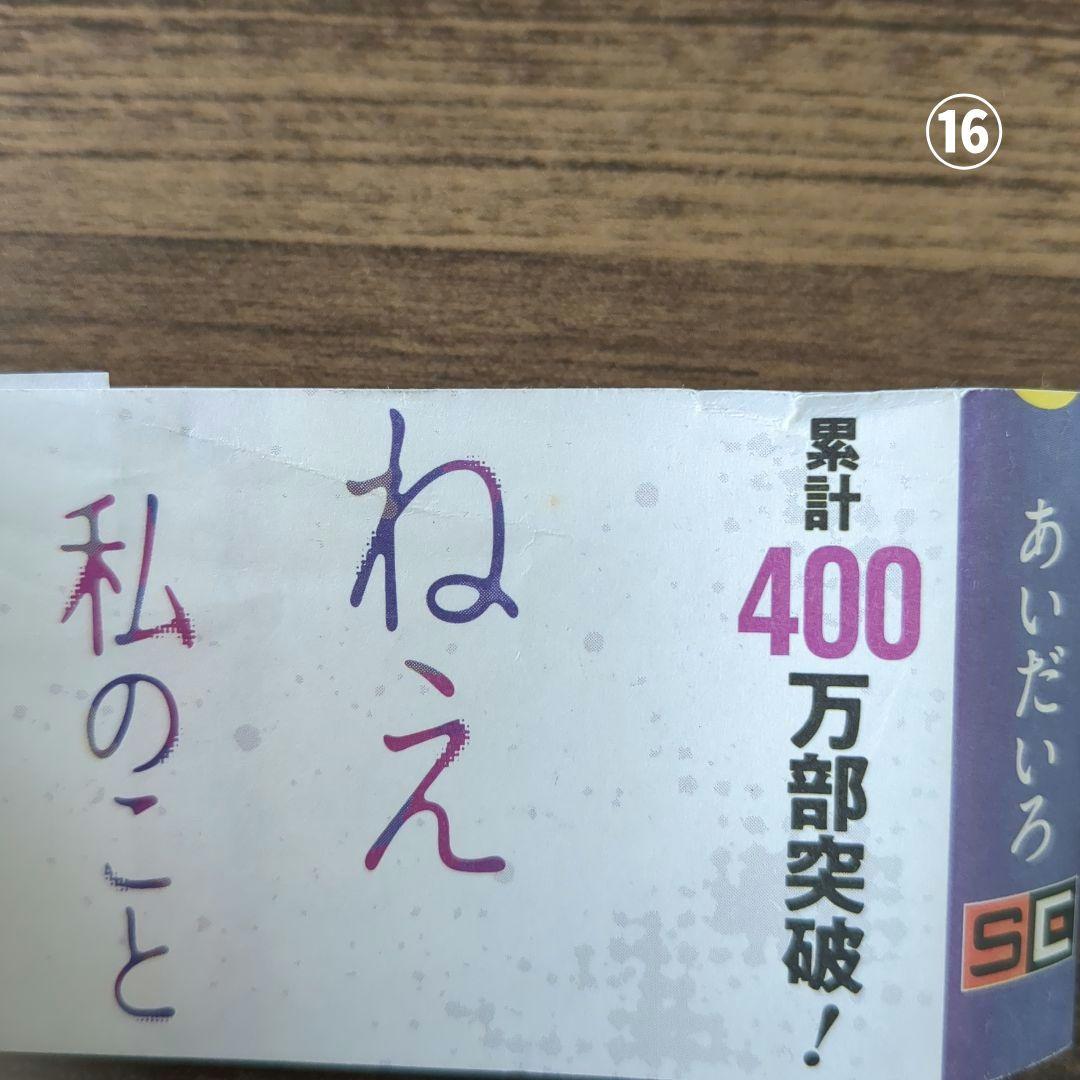 ⑯
あいだいろ
SG
累計400万部突破！
ねえ
私のこと